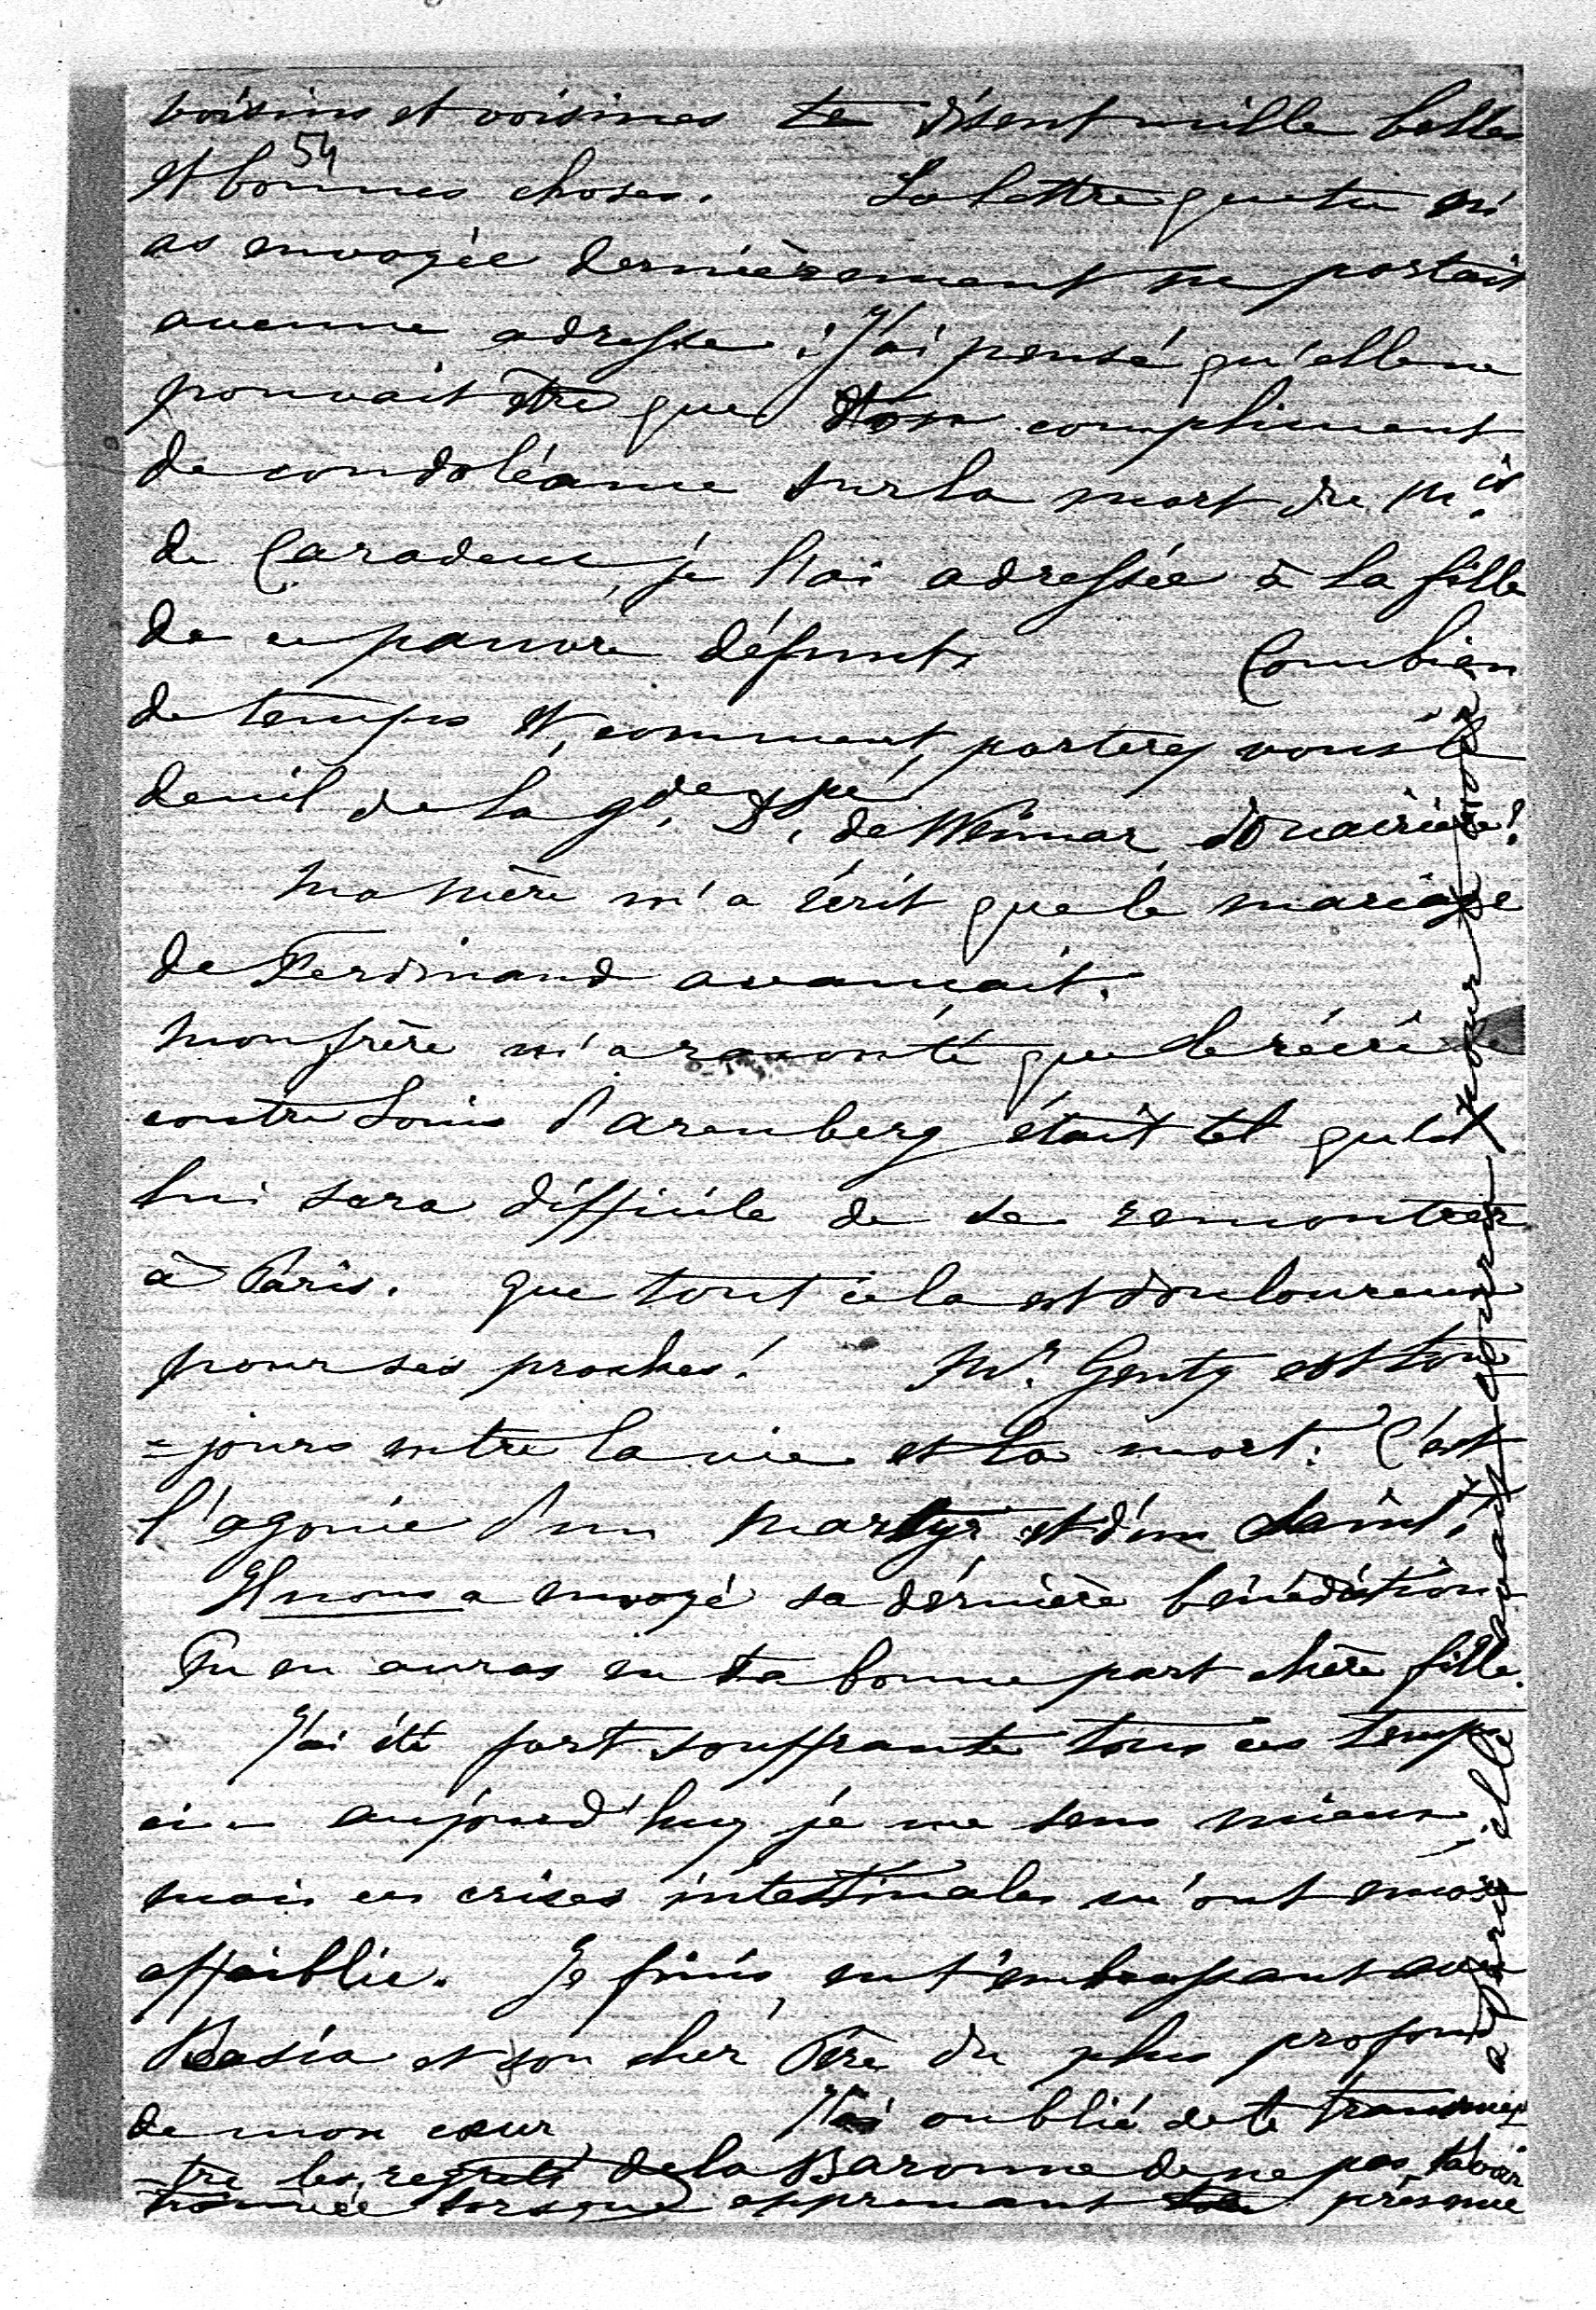 voisins et voisines te disent mille belles
54
et bonnes choses. La lettre que tu m'
as envoyée dernièrement ne portait
aucune adresse ; j'ai pensé qu'elle ne
pouvait être que ton compliment
de condoléance sur la mort du M.is
de Caradeuc, je l'ai adressée à la fille
de ce pauvre défunt. Combien
de temps et comment porterez vous le
deuil de la gde. D.sse de Weimar douairière?
Ma mère m'a écrit que le mariage
de Ferdinand avançait.
Mon frère m'a raconté que le récri
contre Louis d'Arenberg était tel qu'il
lui sera difficile de se remontrer
à Paris. Que tout cela est douloureux
pour ses proches! Mr. Genty est tou
=jours entre la vie et la mort. C'est
l'agonie d'un martyr et d'un Saint.
Il nous a envoyé sa dernière bénédiction
Tu en auras eu ta bonne part chère fille.
J'ai été fort souffrante tous ces temps
ci - aujourd'huy je me sens mieux,
mais ces crises intestinales m'ont encore
affaiblie. Je finis en t'embrassant avec
et son cher Père du plus profond
de mon cœur J'ai oublié de te transmet
-tre les regrets de la Baronne de ne pas t'avoir
trouvée lorsque apprenant présence
à Paris, elle avait couru pour te voir.